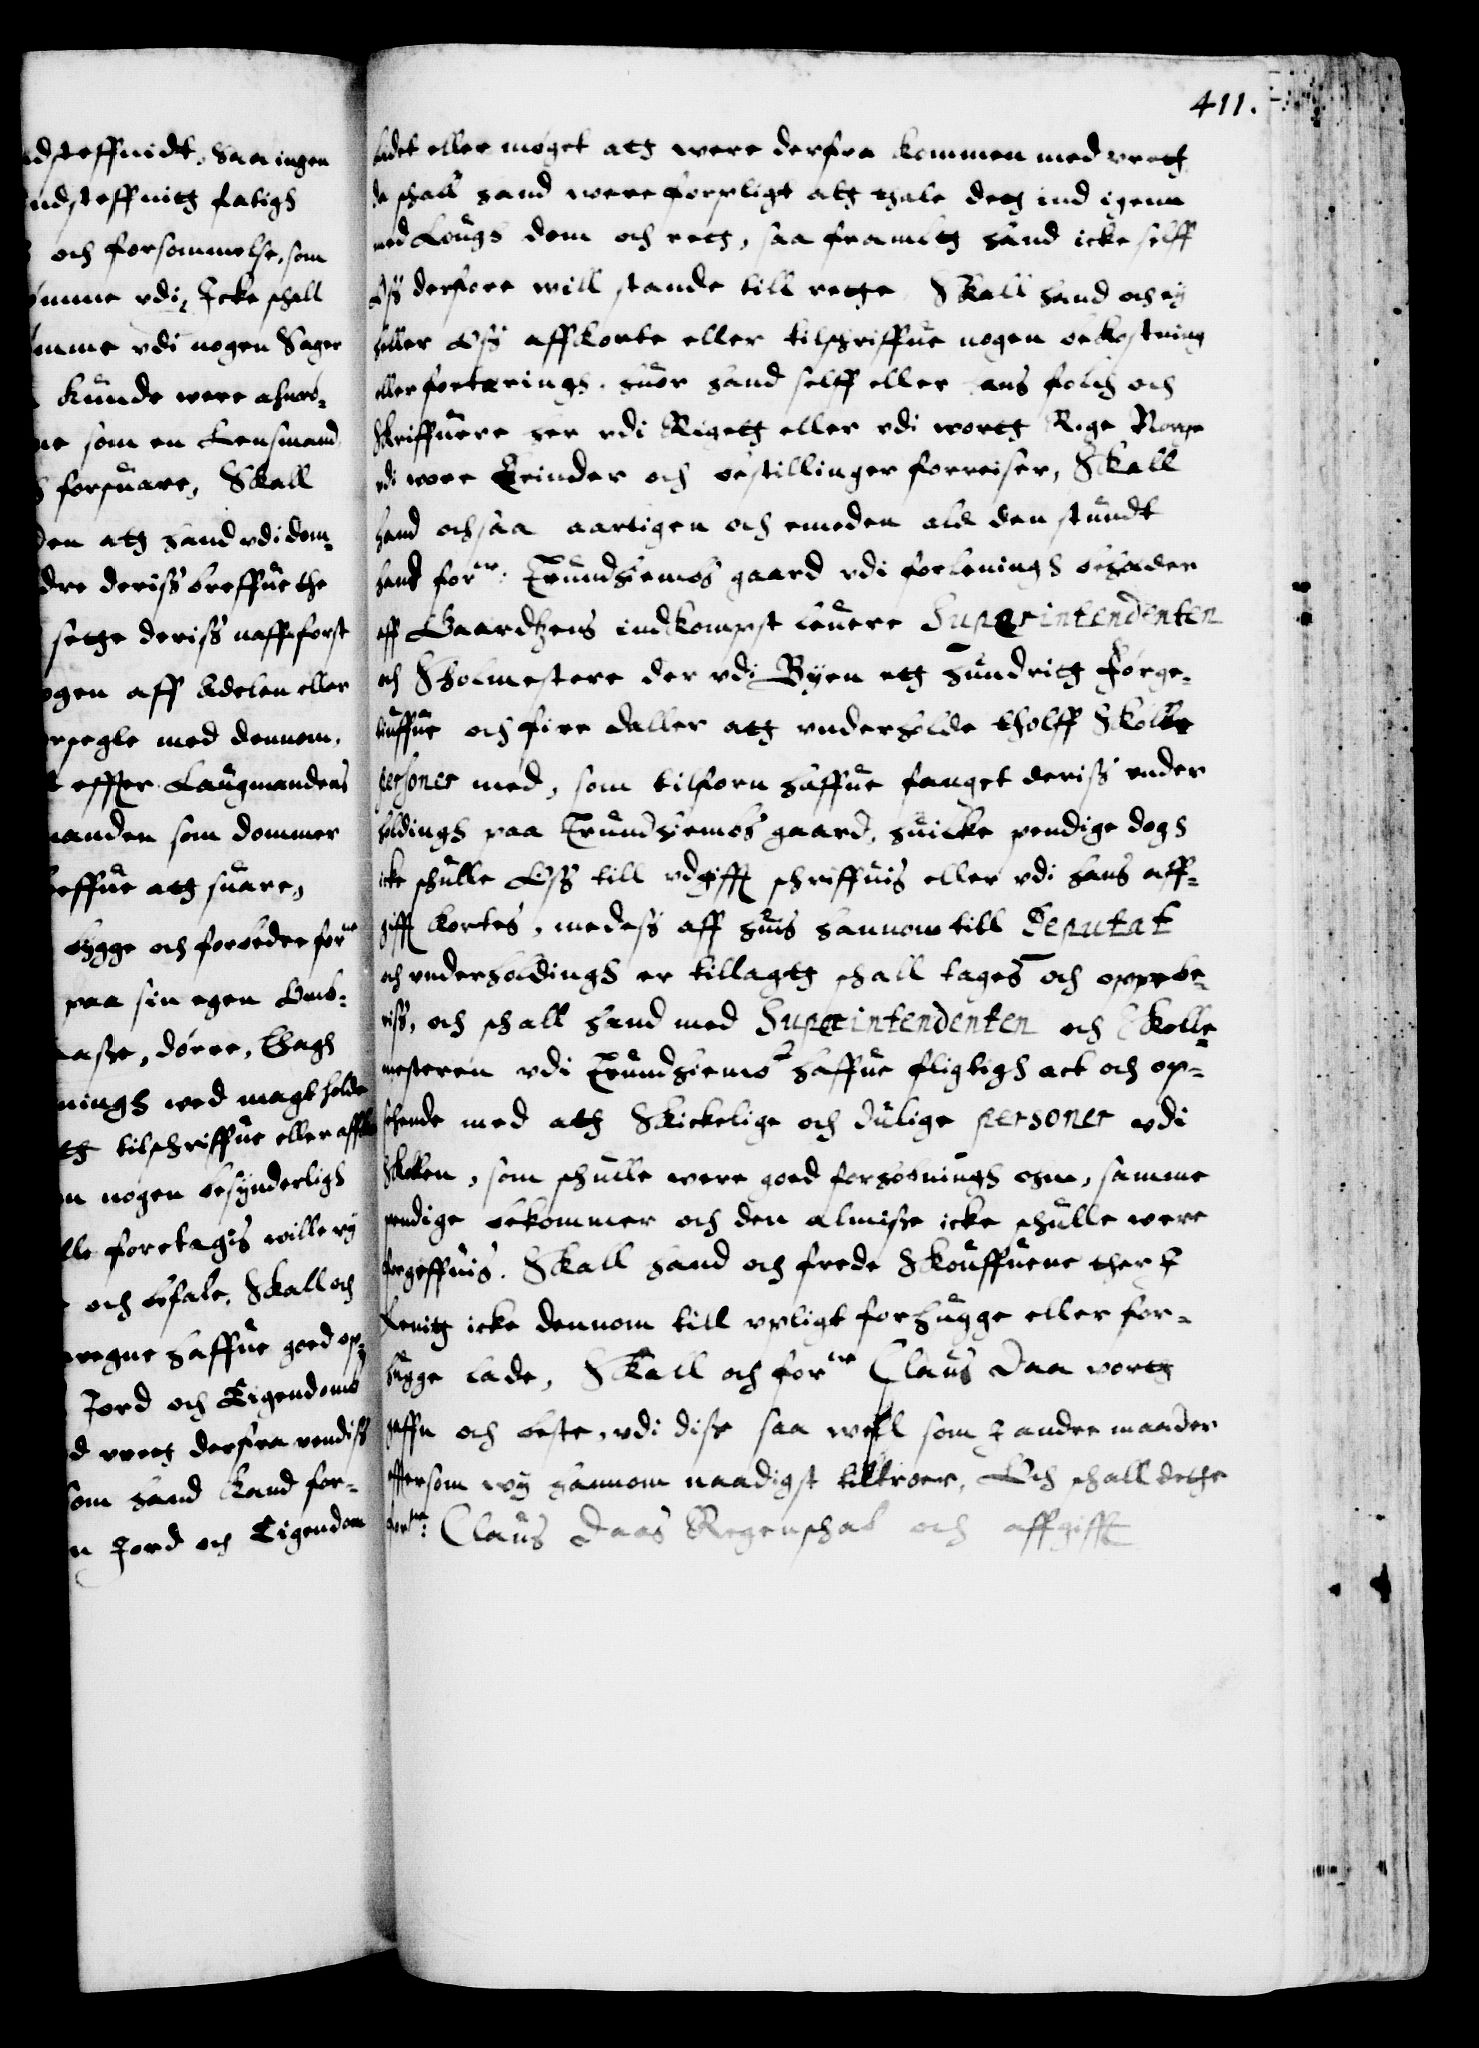 411.
dsteffnidt, Saa ingen
ndsteffnitg fatigh
och forsommelse, som
ømme vdi, Icke schall
ømme vdi nogen Sager
kunde were
ne som en Lensmand
forsuare, Skall
den atg hand vdi dom-
dre deriss breffue the
setge deriss naffn forst
ogen aff Adelen eller
rsegle med dennom,
effter Laugmandens
manden som dommer
beffue atg suare,
bygge och forbedre forne
paa sin egen Omb-
dørre, Thagh
ningh wed magt holde
tg tilschriffue eller affko
nogen besynderligh
lle foretagis wille wy
och befale, Skall och
wegne haffue goed op-
Jord och Eigendomb
d wretg derfra vendiss
som hand kand for-
n Jord och Eigendom
ladet eller noget atg were derfra kommen med vretg
da schall hand were forpligt atg thale detg ind igenn
med Lougb dom och retg, saa frambtg hand icke selff
Oss derfore will stande till retge, Skall hand och ey
heller Oss affkorte eller tilschriffue nogen bekostning
eller fortæringh, huor hand selff eller hans foch och
Skriffuere her vdi Rigetg eller vdi wortg Rige Norge
vdi wore Erinder och bestillinger forreiser, Skall
hand ochsaa aarligen och emeden ald den stundt
hand forne: Trundhiembs gaard vdi forleningh behader
aff Gaardtzens indkompst leuere Superintendenten
och Skolmestere der vdi Byen etg hundritg Førge-
tiuffue och fire daller atg vnderholde tholff Skolle
personer med, som tilforn haffue fanget deriss vnder
holdingh paa Trundhiembs gaard, huilke pendige dogh
icke schulle Oss till vdgifft schriffuis eller vdi hans aff-
gifft kortes, medess aff huis hannom till Deputat
och vnderholdingh er tillagtg schall tages och oppebe-
riss, och schall hand med Superintendenten och Skolle
mesteren vdi Trundhiemb haffue fligtigh act och op-
seende med atg Skickelige och dulige personer vdi
Skollen, som schulle were goed forhobningh om, samme
pendige bekommer och den almisse icke schulle were
forgeffuis. Skall hand och frede Skouffuene ther I
Lenitg icke dennom till vpligt forhugge eller for-
hugge lade, Skall och forne Claus Daa vortg
gaffn och beste, vdi disse saa well som I andre maader
effter som wy hannom naadigst tiltroer, Och schall dethe
forne: Claus Daas Regenschab och affgifft